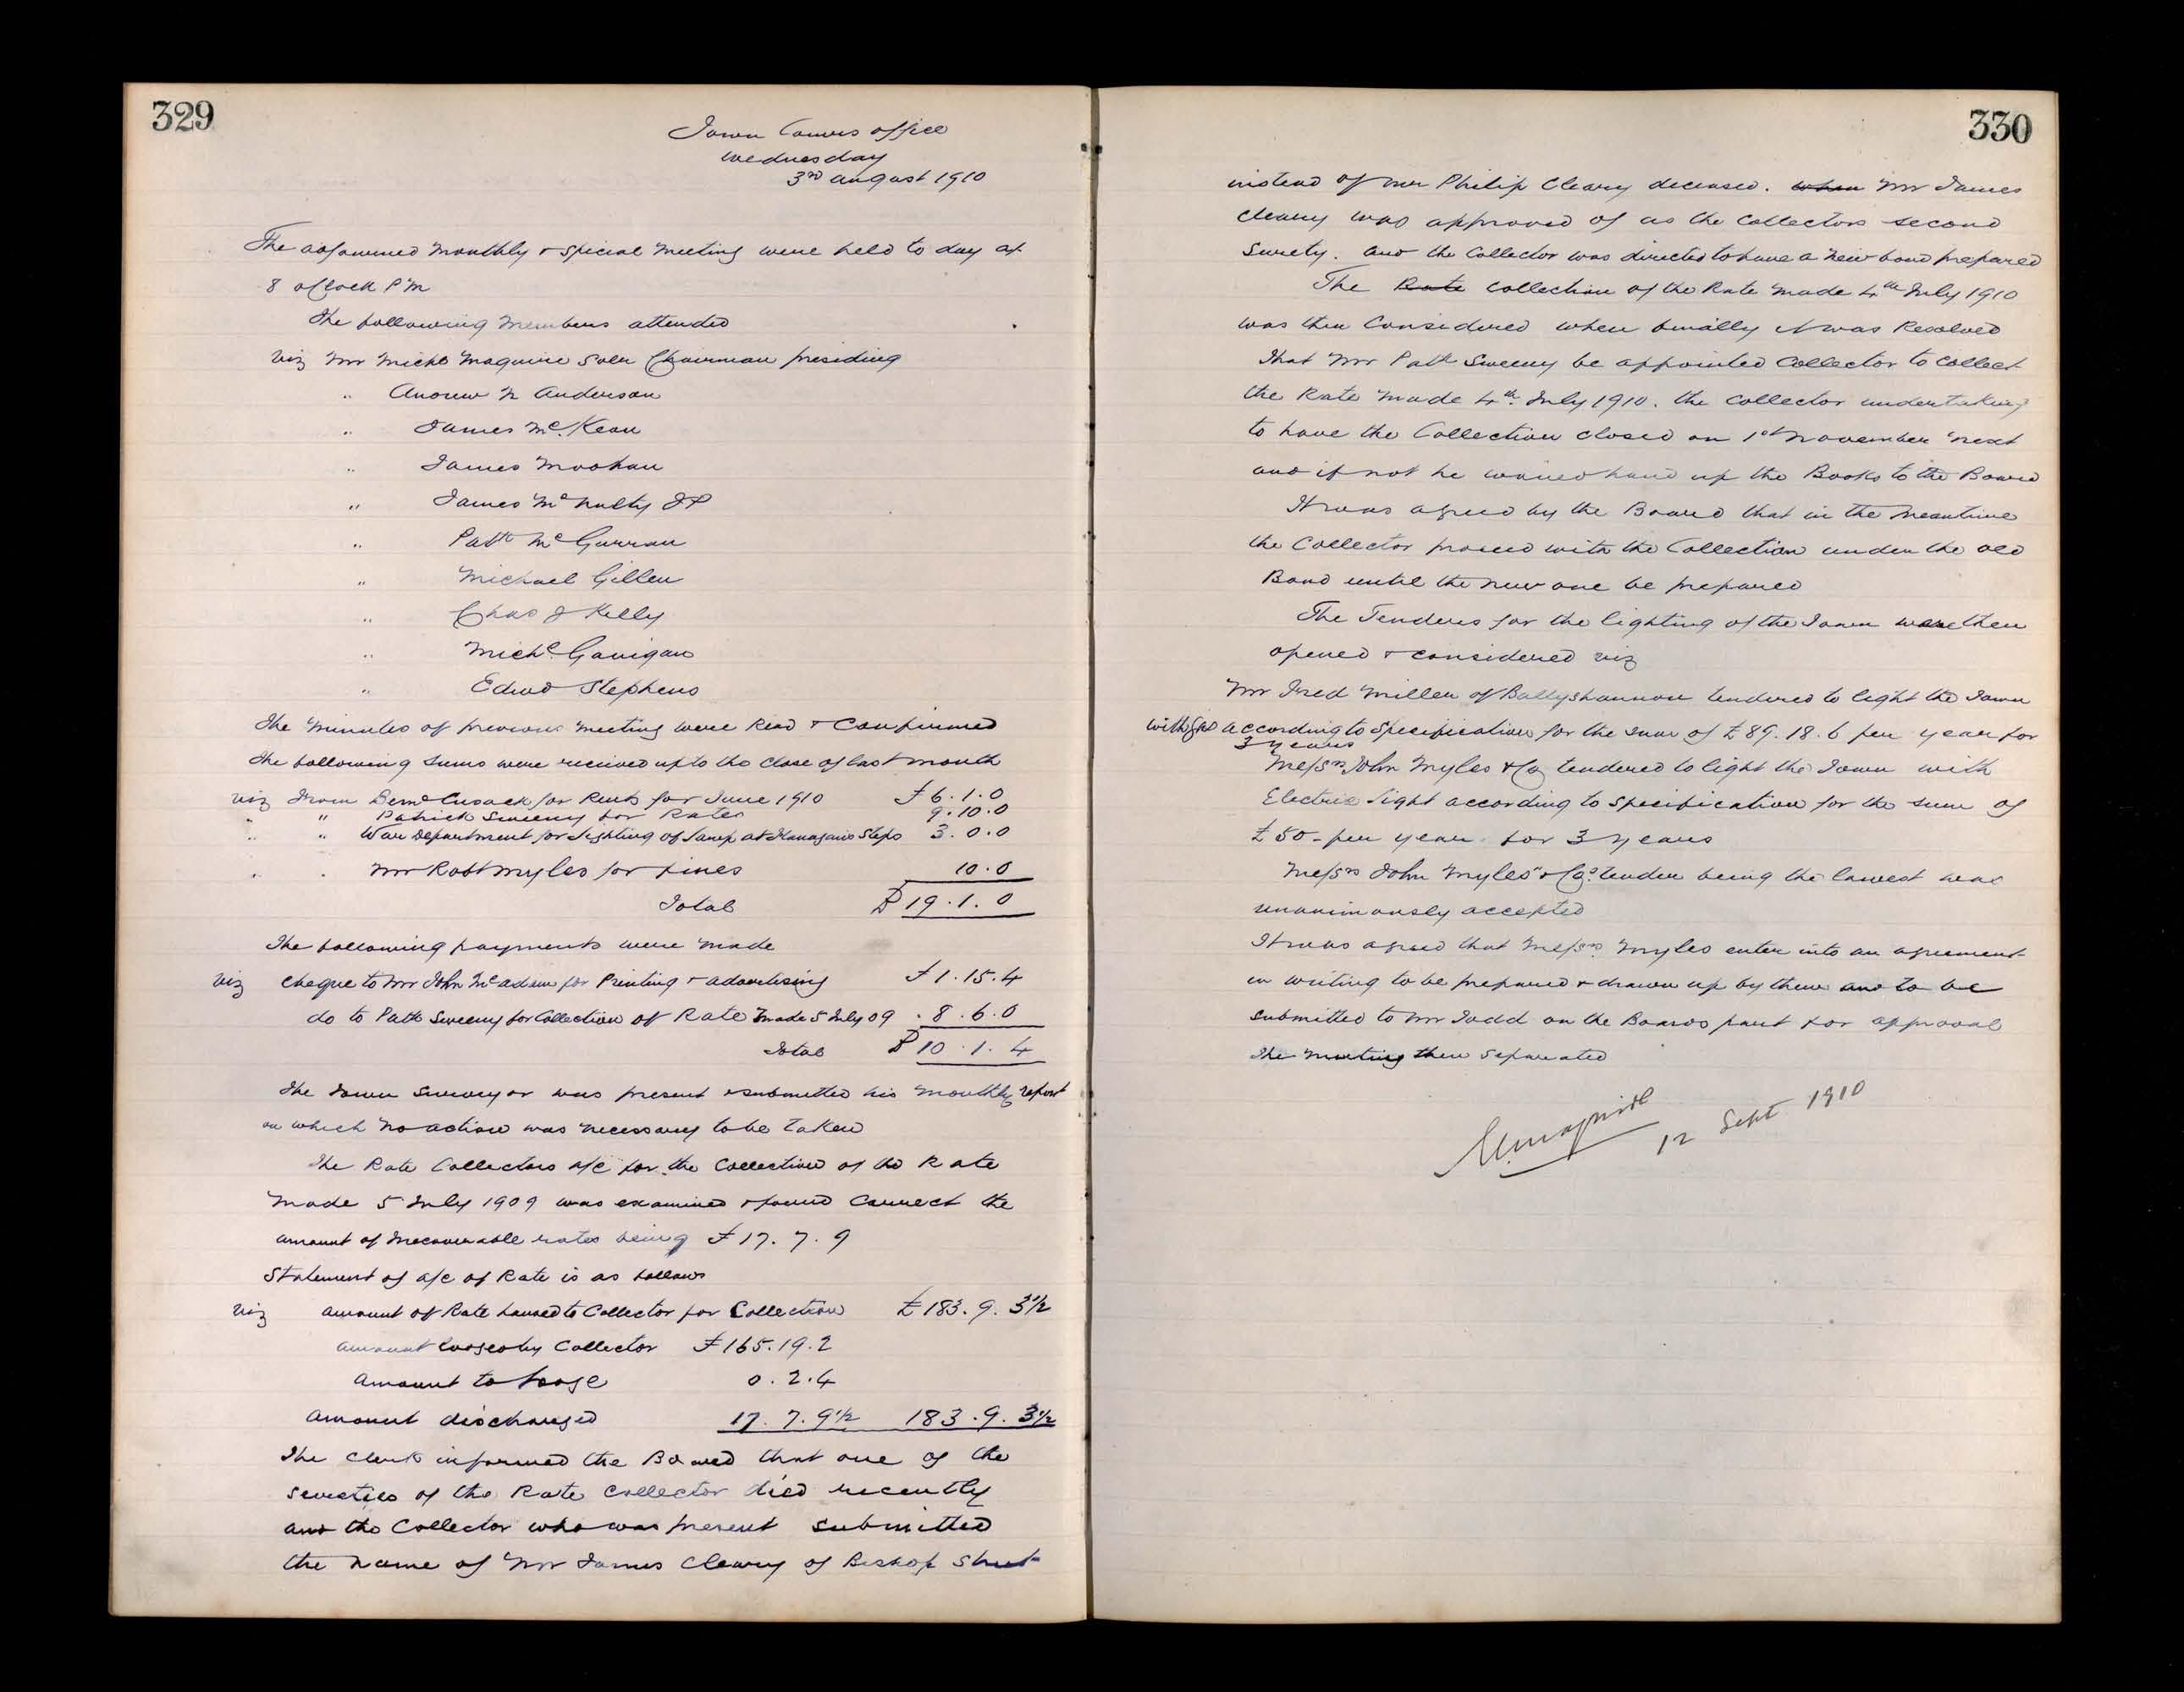 329
Town Comrs office
Wednesday
3rd august 1910
The adjourned Monthly & Special Meeting were held to day at
8 oClock P M
The following Members attended
Viz Mr Michl Maguire Solr Chairman presiding
" Andrew N Anderson
" James Mc Kean
" James Moohan
" James McNulty JP
" Patk McGurran
" Michael Gillen
" Chas J Kelly
" Michl Gavigan
" Edwd Stephens
The Minutes of previous meeting were Read & Confirmed
The following Sums were received up to the Close of last month
viz From Bernd Cusack for Rents for June 1910 £6.1.0
" " Patrick Sweeny for Rates 9.10.0
" " War Department for Lighting of Lamp at Flanagans Steps 3.0.0
" " Mr Robt Myles for fines 10.0
Total £19.1.0
The following payments were made
Viz Cheque to Mr John McAdam for Printing & advertising £1.15.4
do to Patk Sweeny for Collection of Rate Made 5 July 09 . 8.6.0
Total £10.1.4
The Town Surveyor was present & submitted his monthly report
on which no action was necessary to be taken
The Rate Collectors a/c for the Collection of the Rate
Made 5 July 1909 was examined & found Correct the
amount of Irrecoverable rates being £17.7.9
Statement of a/c of Rate is as follows
viz amount of Rate handed to Collector for Collection £183.9.3½
amount lodged by Collector £165.19.2
amount to lodge 0.2.4
amount discharged 17.7.9½ 183.9.3½
The Clerk informed the Board that one of the
sureties of the Rate Collector died recently
and the Collector who was present submitted
the name of Mr James Cleary of Bishop Street
330
instead of Mr Philip Cleary deceased. when Mr James
Cleary was approved of as the Collectors second
Surety. and the Collector was directed to have a New bond prepared
The Rate Collection of the Rate made 4th July 1910
was then Considered when finally it was Resolved
That Mr Patk Sweeny be appointed Collector to Collect
the Rate Made 4th July 1910. the Collector undertaking
to have the Collection closed on 1st November next
and if not he would hand up the Books to the Board
It was agreed by the Board that in the meantime
the Collector proceed with the Collection under the old
Bond until the new one be prepared
The Tenders for the lighting of the Town were then
opened & considered viz
Mr Fred Miller of Ballyshannon tendered to light the Town
with gas according to Specification for the sum of £89.18.6 per year for
3 years
Messrs John Myles & Co tendered to light the Town with
Electric light according to Specification for the sum of
£50 - per year for 3 years
Messrs John Myles & Cos tender being the lowest was
unanimously accepted
It was agreed that Messrs Myles enter into an agreement
in writing to be prepared & drawn up by them and to be
submitted to Mr Todd on the Boards part for approval
The Meeting then Separated
Maguire
12 Sept 1910